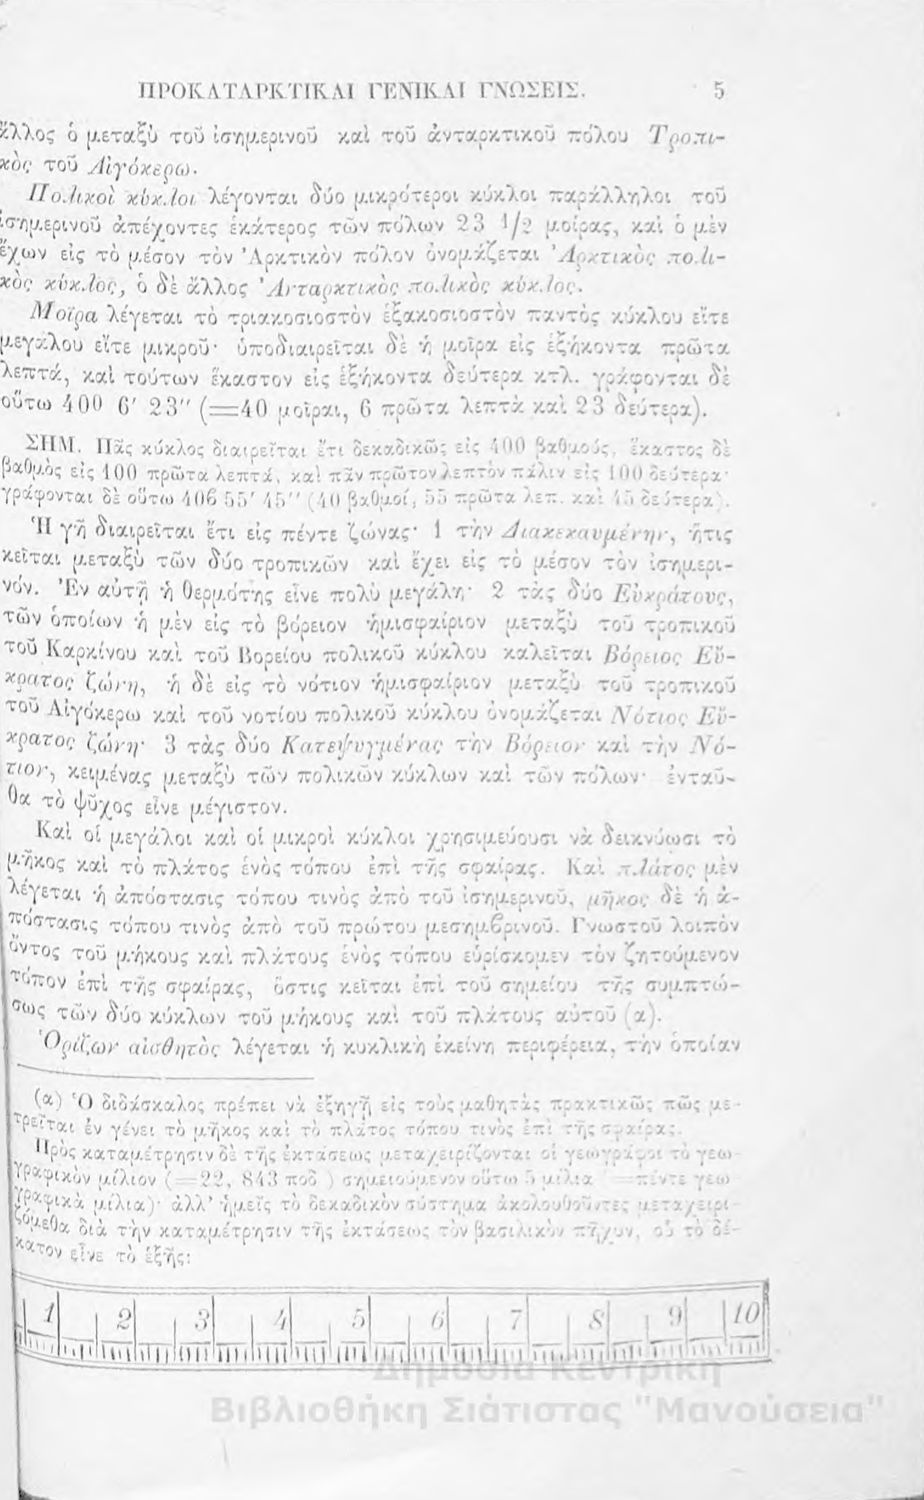 ΠΡΟΚΑΤΑΡΚΤΙΚΑΙ ΓΕΝΙΚΑΙ ΓΝΩΣΕΙΣ. 5
ἄλλος ὁ μεταξὺ τοῦ ἰσημερινοῦ καὶ τοῦ ἀνταρκτικοῦ πόλου Τροπι-
κὸς τοῦ Αἰγόκερω.
Πολικοὶ κύκλοι λέγονται δύο μικρότεροι κύκλοι παράλληλοι τοῦ
ἰσημερινοῦ ἀπέχοντες ἑκάτερος τῶν πόλων 23 1/2 μοίρας, καὶ ὁ μὲν
ἔχων εἰς τὸ μέσον τὸν Ἀρκτικὸν πόλον ὀνομάζεται Ἀρκτικὸς πολι-
κὸς κύκλος, ὁ δὲ ἄλλος Ἀνταρκτικὸς πολικὸς κύκλος.
Μοῖρα λέγεται τὸ τριακοσιοστὸν ἑξακοσιοστὸν παντὸς κύκλου εἴτε
μεγάλου εἴτε μικροῦ· ὑποδιαιρεῖται δὲ ἡ μοῖρα εἰς ἑξήκοντα πρῶτα
λεπτά, καὶ τούτων ἕκαστον εἰς ἑξήκοντα δεύτερα κτλ. γράφονται δὲ
οὕτω 400 6′ 23″ (=40 μοῖραι, 6 πρῶτα λεπτὰ καὶ 23 δεύτερα).
ΣΗΜ. Πᾶς κύκλος διαιρεῖται ἔτι δεκαδικῶς εἰς 400 βαθμούς, ἕκαστος δὲ
βαθμὸς εἰς 100 πρῶτα λεπτά, καὶ πᾶν πρῶτον λεπτὸν πάλιν εἰς 100 δεύτερα·
γράφονται δὲ οὕτω 406 55′ 45″ (40 βαθμοί, 55 πρῶτα λεπ. καὶ 45 δεύτερα).
Ἡ γῆ διαιρεῖται ἔτι εἰς πέντε ζώνας· 1 τὴν Διακεκαυμένην, ἥτις
κεῖται μεταξὺ τῶν δύο τροπικῶν καὶ ἔχει εἰς τὸ μέσον τὸν ἰσημερι-
νόν. Ἐν αὐτῇ ἡ θερμότης εἶνε πολὺ μεγάλη· 2 τὰς δύο Εὐκράτους,
τῶν ὁποίων ἡ μὲν εἰς τὸ βόρειον ἡμισφαίριον μεταξὺ τοῦ τροπικοῦ
τοῦ Καρκίνου καὶ τοῦ Βορείου πολικοῦ κύκλου καλεῖται Βόρειος Εὔ-
κρατος ζώνη, ἡ δὲ εἰς τὸ νότιον ἡμισφαίριον μεταξὺ τοῦ τροπικοῦ
τοῦ Αἰγόκερω καὶ τοῦ νοτίου πολικοῦ κύκλου ὀνομάζεται Νότιος Εὔ-
κρατος ζώνη· 3 τὰς δύο Κατεψυγμένας τὴν Βόρειον καὶ τὴν Νό-
τιον, κειμένας μεταξὺ τῶν πολικῶν κύκλων καὶ τῶν πόλων· ἐνταῦ-
θα τὸ ψῦχος εἶνε μέγιστον.
Καὶ οἱ μεγάλοι καὶ οἱ μικροὶ κύκλοι χρησιμεύουσι νὰ δεικνύωσι τὸ
μῆκος καὶ τὸ πλάτος ἑνὸς τόπου ἐπὶ τῆς σφαίρας. Καὶ πλάτος μὲν
λέγεται ἡ ἀπόστασις τόπου τινὸς ἀπὸ τοῦ ἰσημερινοῦ, μῆκος δὲ ἡ ἀ-
πόστασις τόπου τινὸς ἀπὸ τοῦ πρώτου μεσημβρινοῦ. Γνωστοῦ λοιπὸν
ὄντος τοῦ μήκους καὶ πλάτους ἑνὸς τόπου εὑρίσκομεν τὸν ζητούμενον
τόπον ἐπὶ τῆς σφαίρας, ὅστις κεῖται ἐπὶ τοῦ σημείου τῆς συμπτώ-
σεως τῶν δύο κύκλων τοῦ μήκους καὶ τοῦ πλάτους αὐτοῦ (α).
Ὁρίζων αἰσθητὸς λέγεται ἡ κυκλικὴ ἐκείνη περιφέρεια, τὴν ὁποίαν
(α) Ὁ διδάσκαλος πρέπει νὰ ἐξηγῇ εἰς τοὺς μαθητὰς πρακτικῶς πῶς με-
τρεῖται ἐν γένει τὸ μῆκος καὶ τὸ πλάτος τόπου τινὸς ἐπὶ τῆς σφαίρας.
Πρὸς καταμέτρησιν δὲ τῆς ἐκτάσεως μεταχειρίζονται οἱ γεωγράφοι τὸ γεω-
γραφικὸν μίλιον (=22, 843 ποδ.) σημειούμενον οὕτω 5 μίλια (=πέντε γεω-
γραφικὰ μίλια)· ἀλλ' ἡμεῖς τὸ δεκαδικὸν σύστημα ἀκολουθοῦντες μεταχειρι-
ζόμεθα διὰ τὴν καταμέτρησιν τῆς ἐκτάσεως τὸν βασιλικὸν πῆχυν, οὗ τὸ δέ-
κατον εἶνε τὸ ἑξῆς:
1 2 3 4 5 6 7 8 9 10
Δημόσια Κεντρική
Βιβλιοθήκη Σιάτιστας "Μανούσεια"